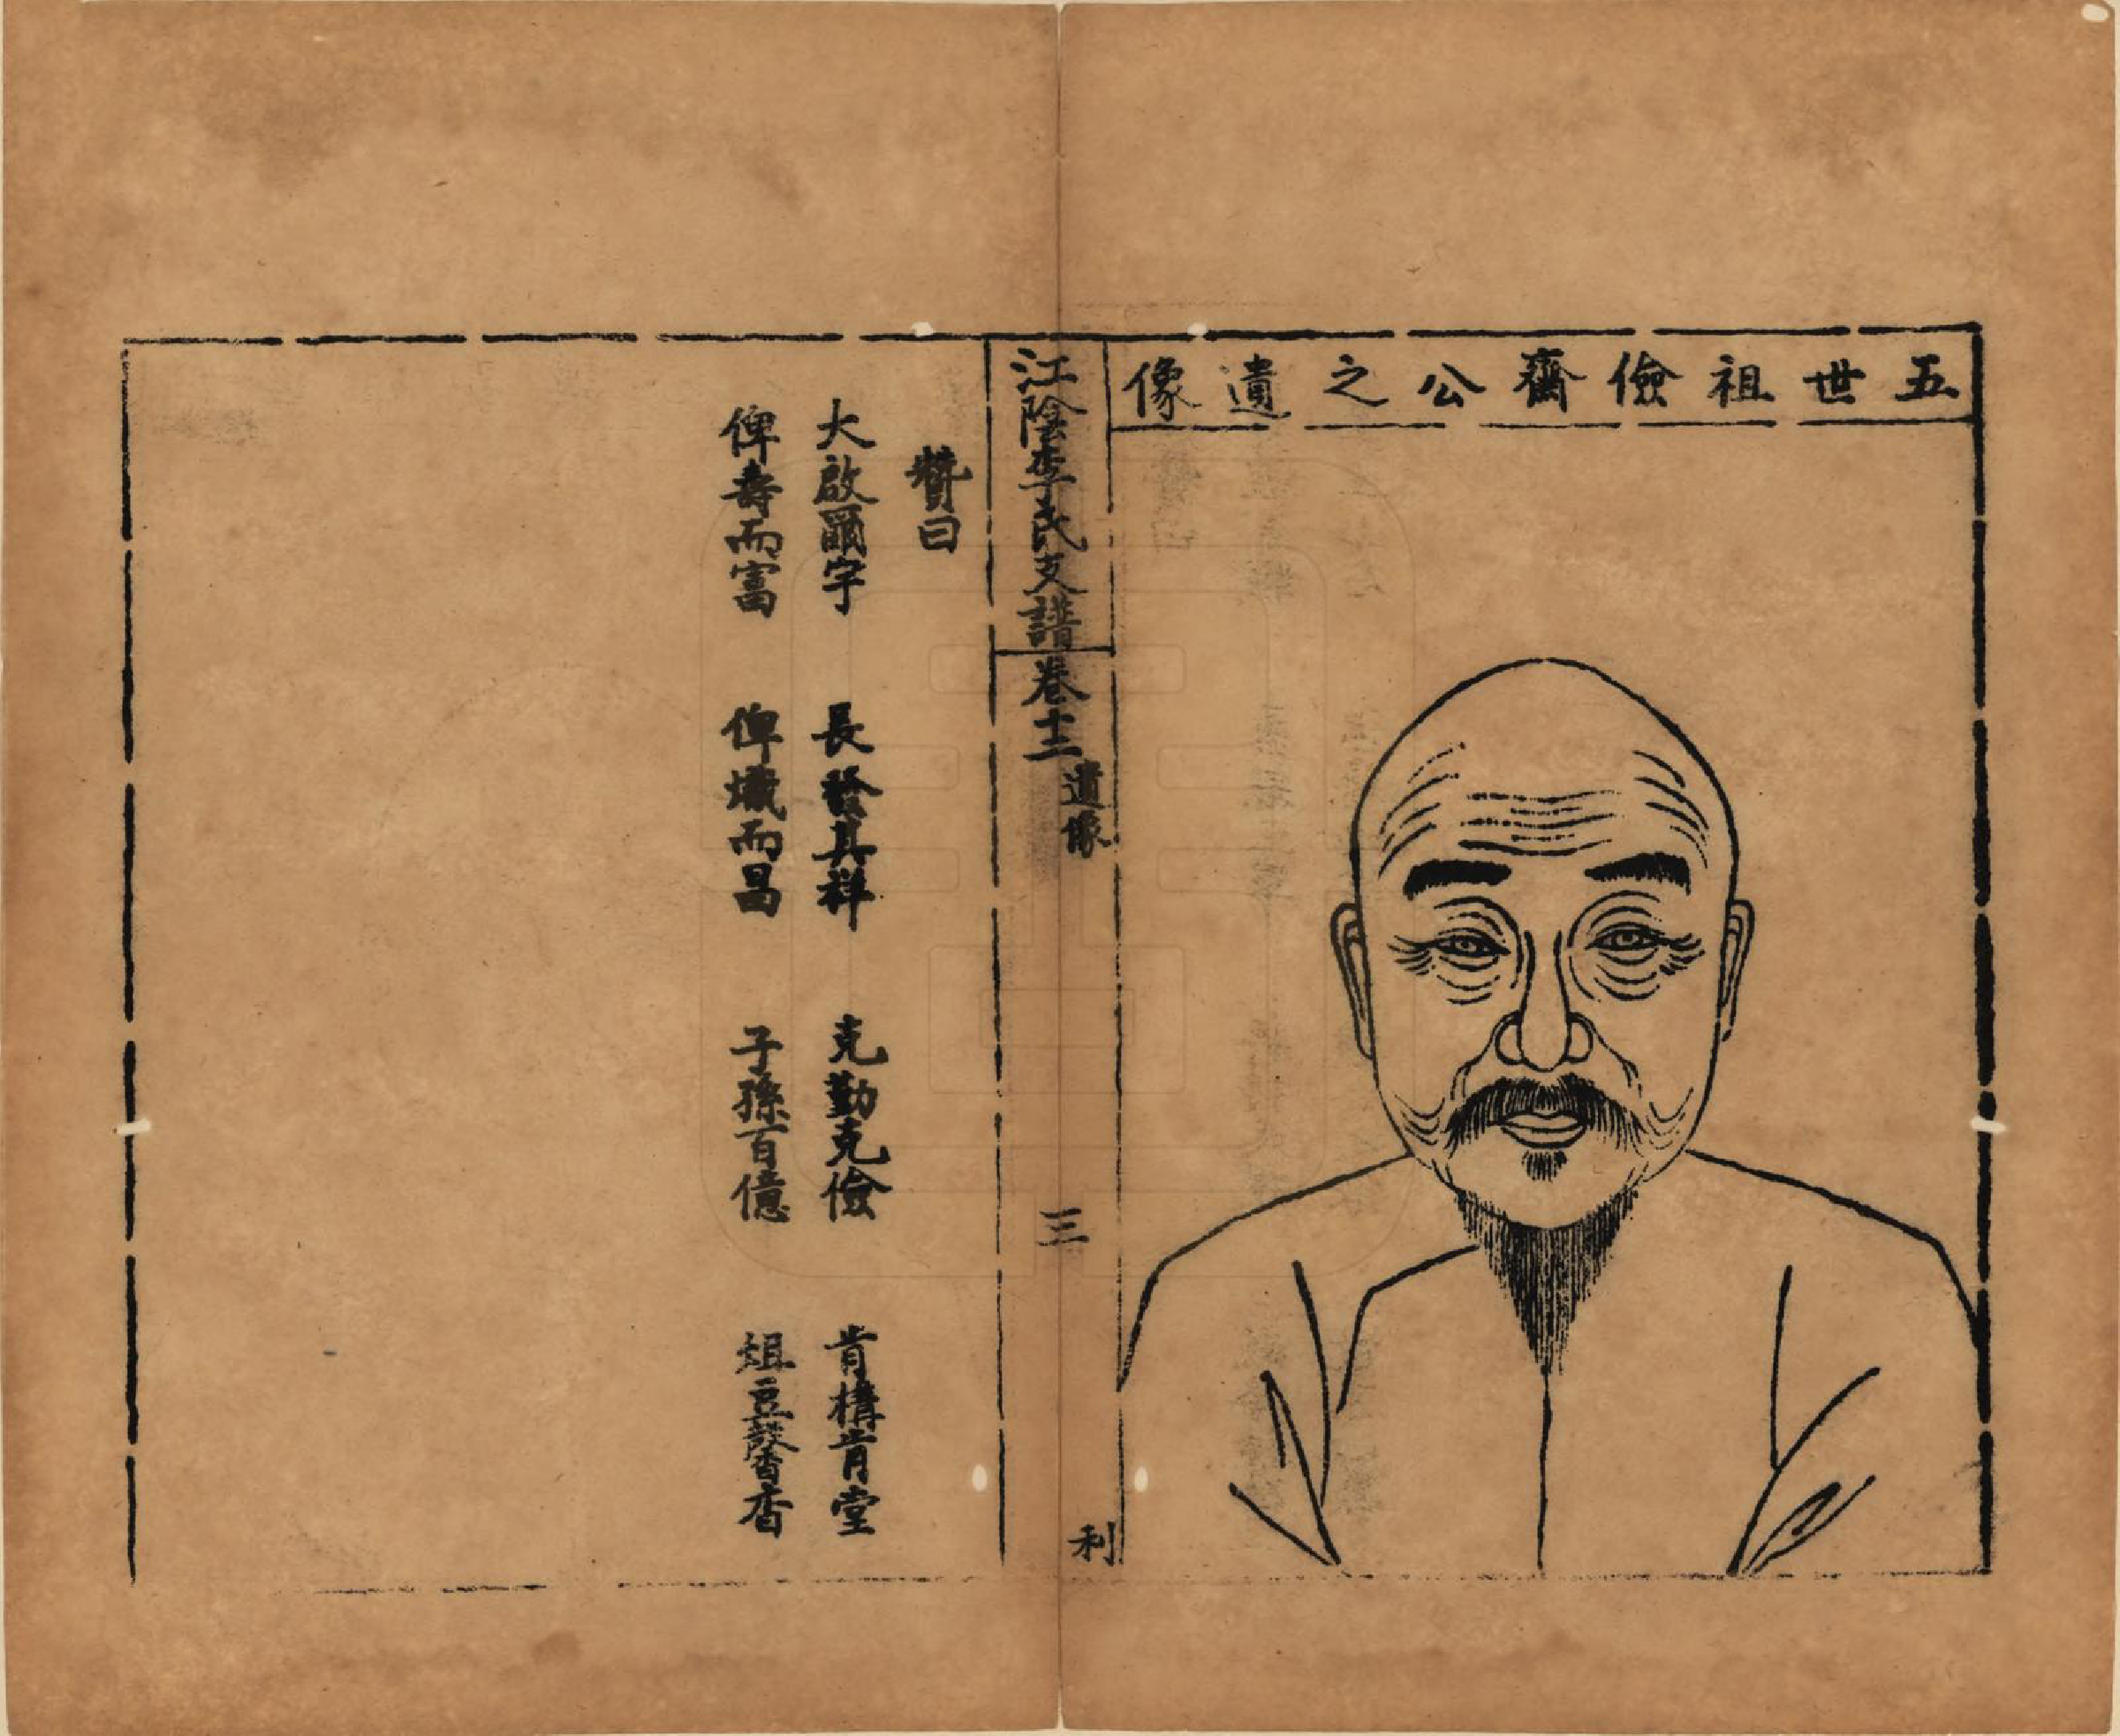 五世祖儉齋公之遺像
江陰李氏支譜
卷十二
遺像
三
利
贊曰
大啟爾宇 長發其祥 克勤克儉 肯構肯堂
俾壽而富 俾熾而昌 子孫百億 俎豆馨香